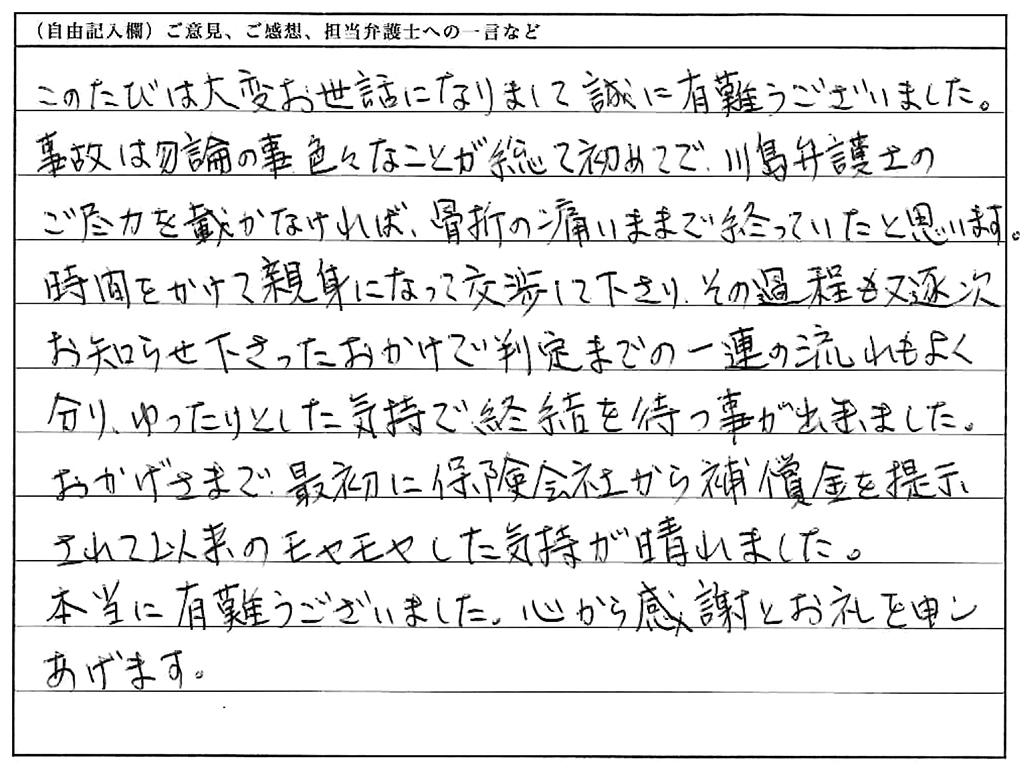 （自由記入欄）ご意見、ご感想、担当弁護士への一言など
このたびは大変お世話になりまして誠に有難うございました。
事故は勿論の事、色々なことが総て初めてで、川島弁護士の
ご尽力を戴かなければ、骨折の痛いままで終っていたと思います。
時間をかけて親身になって交渉して下さり、その過程も又逐次
お知らせ下さったおかげで判定までの一連の流れもよく
分り、ゆったりとした気持で終結を待つ事が出来ました。
おかげさまで、最初に保険会社から補償金を提示
されて以来のモヤモヤした気持が晴れました。
本当に有難うございました。心から感謝とお礼を申し
あげます。